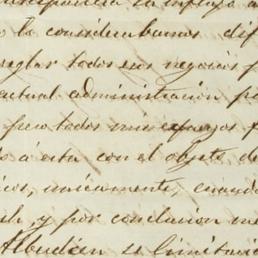 su influjo a
lo considerabamos dif
reglar todos esos negocios p
actual administracion po
todos mis esfuerzos p
a esta con el objeto de
unicamente, cuando
y por conclusion me
se limitacio